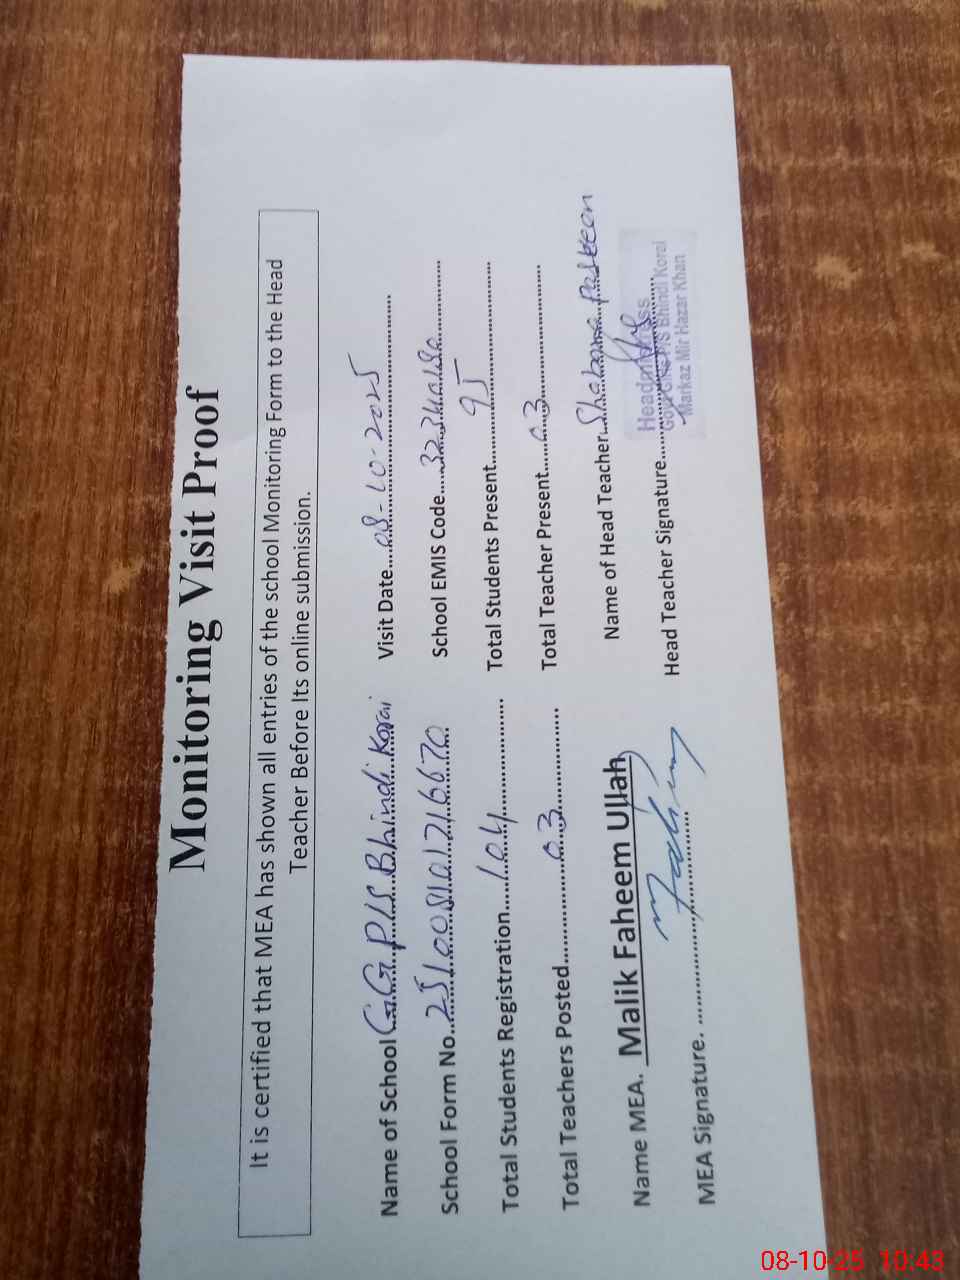 Monitoring Visit Proof
It is certified that MEA has shown all entries of the school Monitoring Form to the Head
Teacher Before Its online submission.
Name of School GGP/S Bhindi Korai Visit Date 08-10-2025
School Form No. 251008101216670 School EMIS Code
Total Students Registration 104 Total Students Present 95
Total Teachers Posted 03 Total Teacher Present 03
Name MEA. Malik Faheem Ullah Name of Head Teacher Shabana Parveen
MEA Signature. Head Teacher Signature
Headmistress
Govt Girls P/S Bhindi Korai
Markaz Mir Hazar Khan
08-10-25 10:43